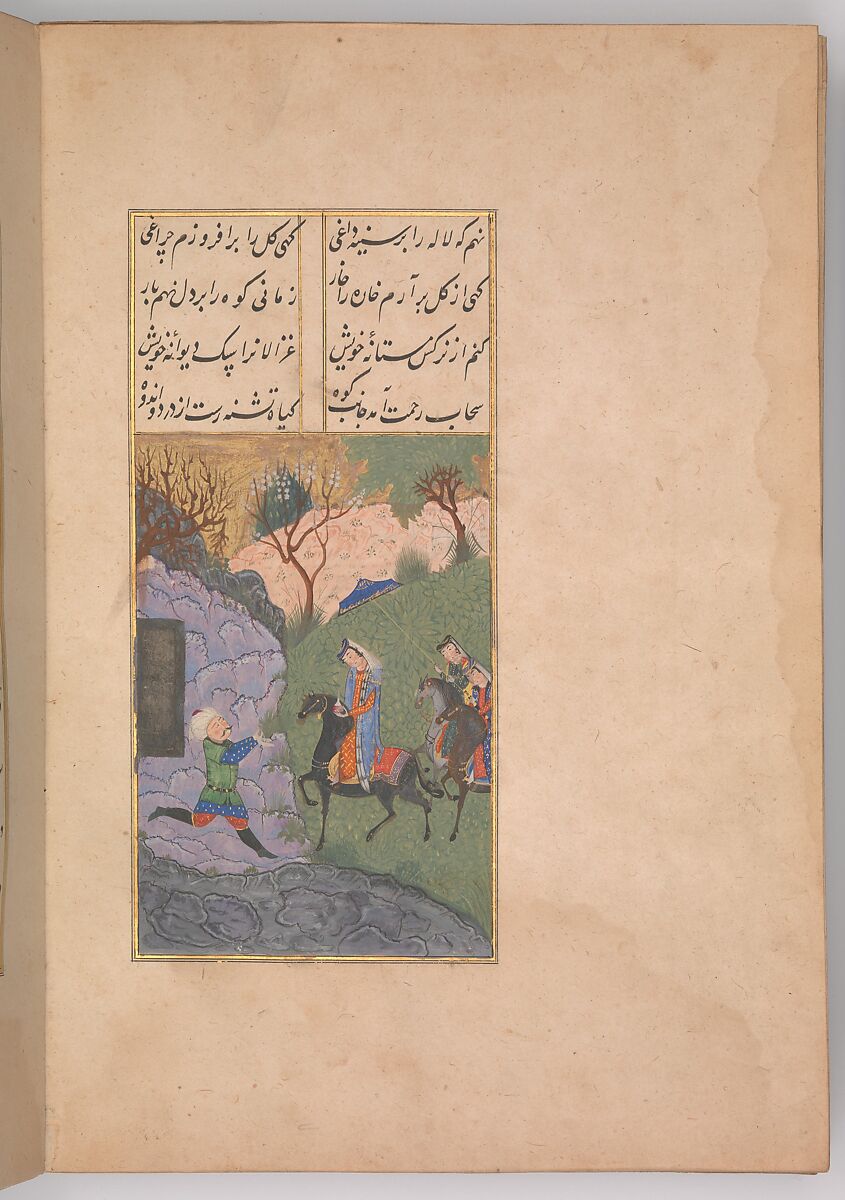 نهم که لاله را بر سینه داغی کهی کل را برافروزم چراغی
کهی از کل برآرم خان را خار زمانی کوه را بر دل نهم بار
کنم از نرکس مستانهٔ خویش غزالانرا سک دیوانهٔ خویش
سحاب رحمت آمد جانب کوه کیاه تشنه رست از درد و اندوه